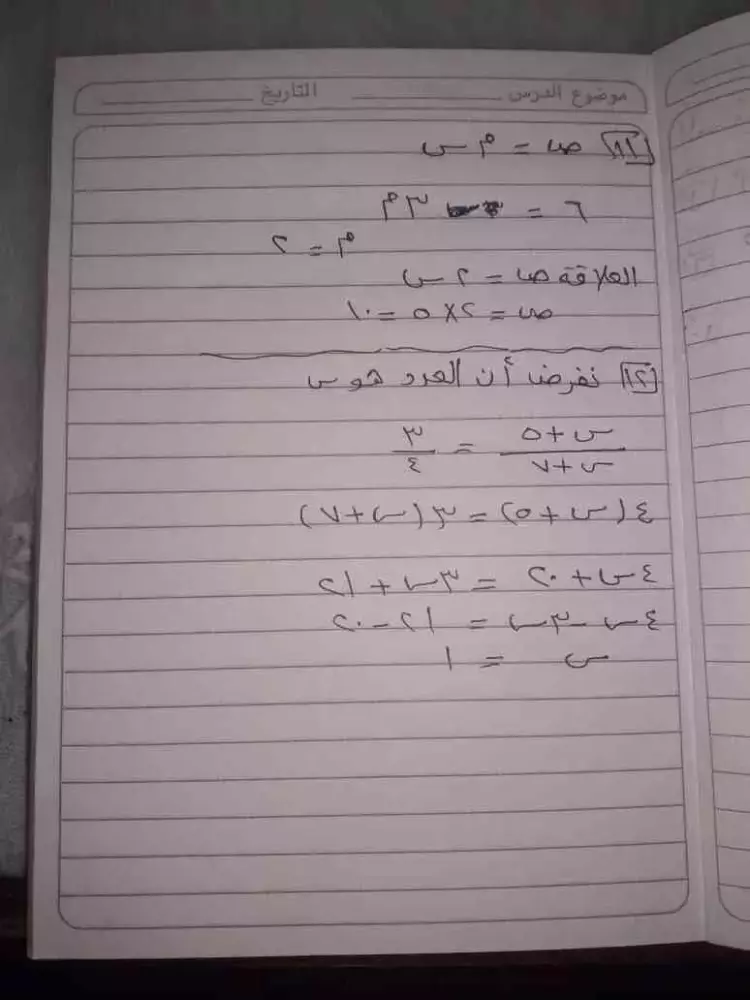 موضوع الدرس التاريخ
١١ ص = م س
٦ = ٣ م
م = ٢
العلاقة ص = ٢ س
ص = ٢ × ٥ = ١٠
١٢ نفرض أن العدد هو س
س + ٥ / س + ٧ = ٣ / ٤
٤ (س + ٥) = ٣ (س + ٧)
٤ س + ٢٠ = ٣ س + ٢١
٤ س - ٣ س = ٢١ - ٢٠
س = ١